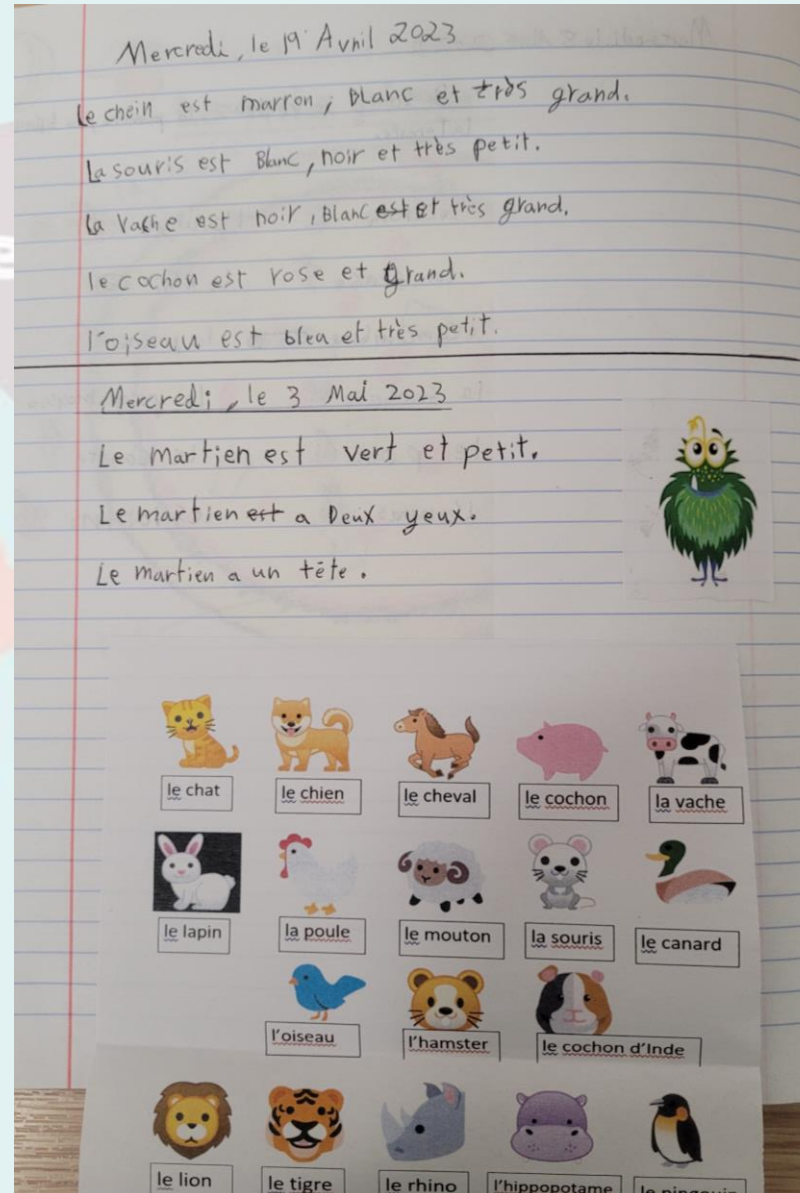 Mercredi, le 19 Avril 2023
Le chein est marron, Blanc et très grand.
La souris est Blanc, noir et très petit.
La vache est noir, Blanc est et très grand.
le cochon est rose et grand.
l'oiseau est bleu et très petit.
Mercredi, le 3 Mai 2023
Le martien est vert et petit.
Le martien est a Deux yeux.
Le martien a un tête.
le chat le chien le cheval le cochon la vache
le lapin la poule le mouton la souris le canard
l'oiseau l'hamster le cochon d'Inde
le lion le tigre le rhino l'hippopotame le pingouin